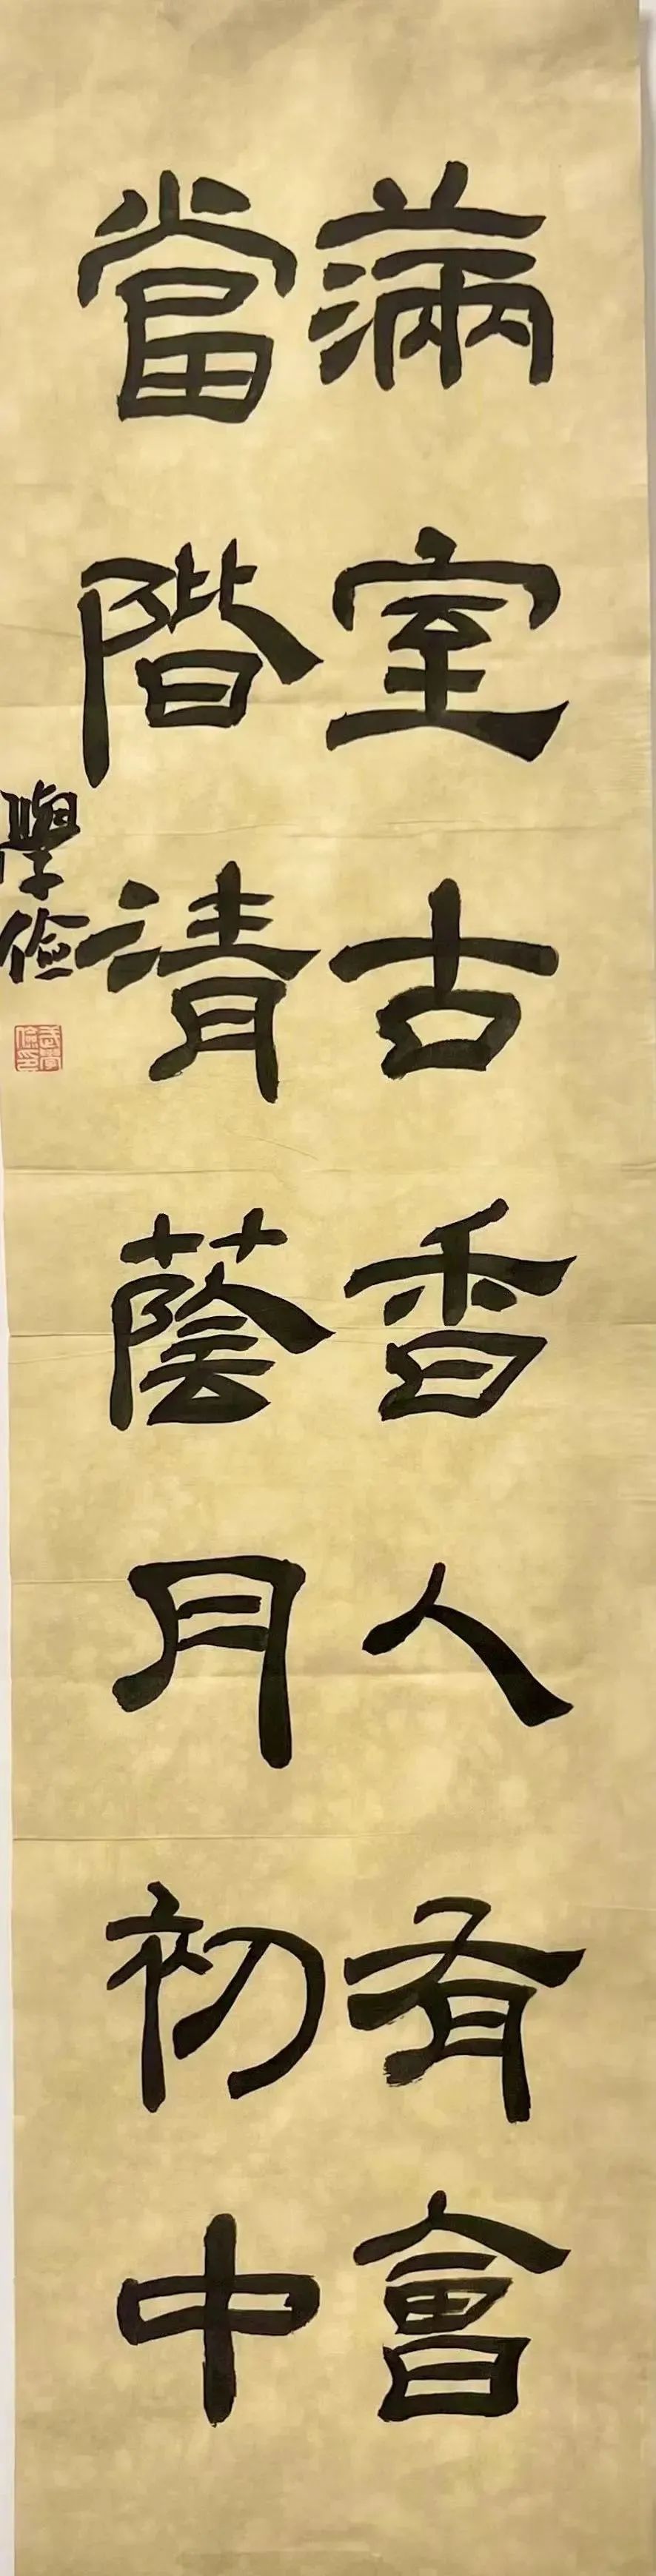 滿室古香人有會
當階清蔭月初中
學儉